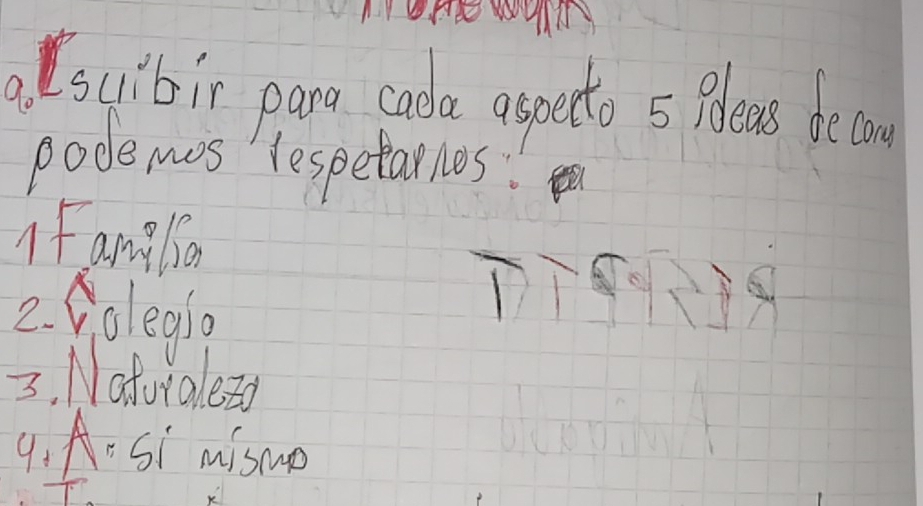 Homework
a. Escribir para cada aspecto 5 ideas de como
podemos respetarnos:
1 Familia
2. Colegio
3. Naturaleza
4. A sí mismo